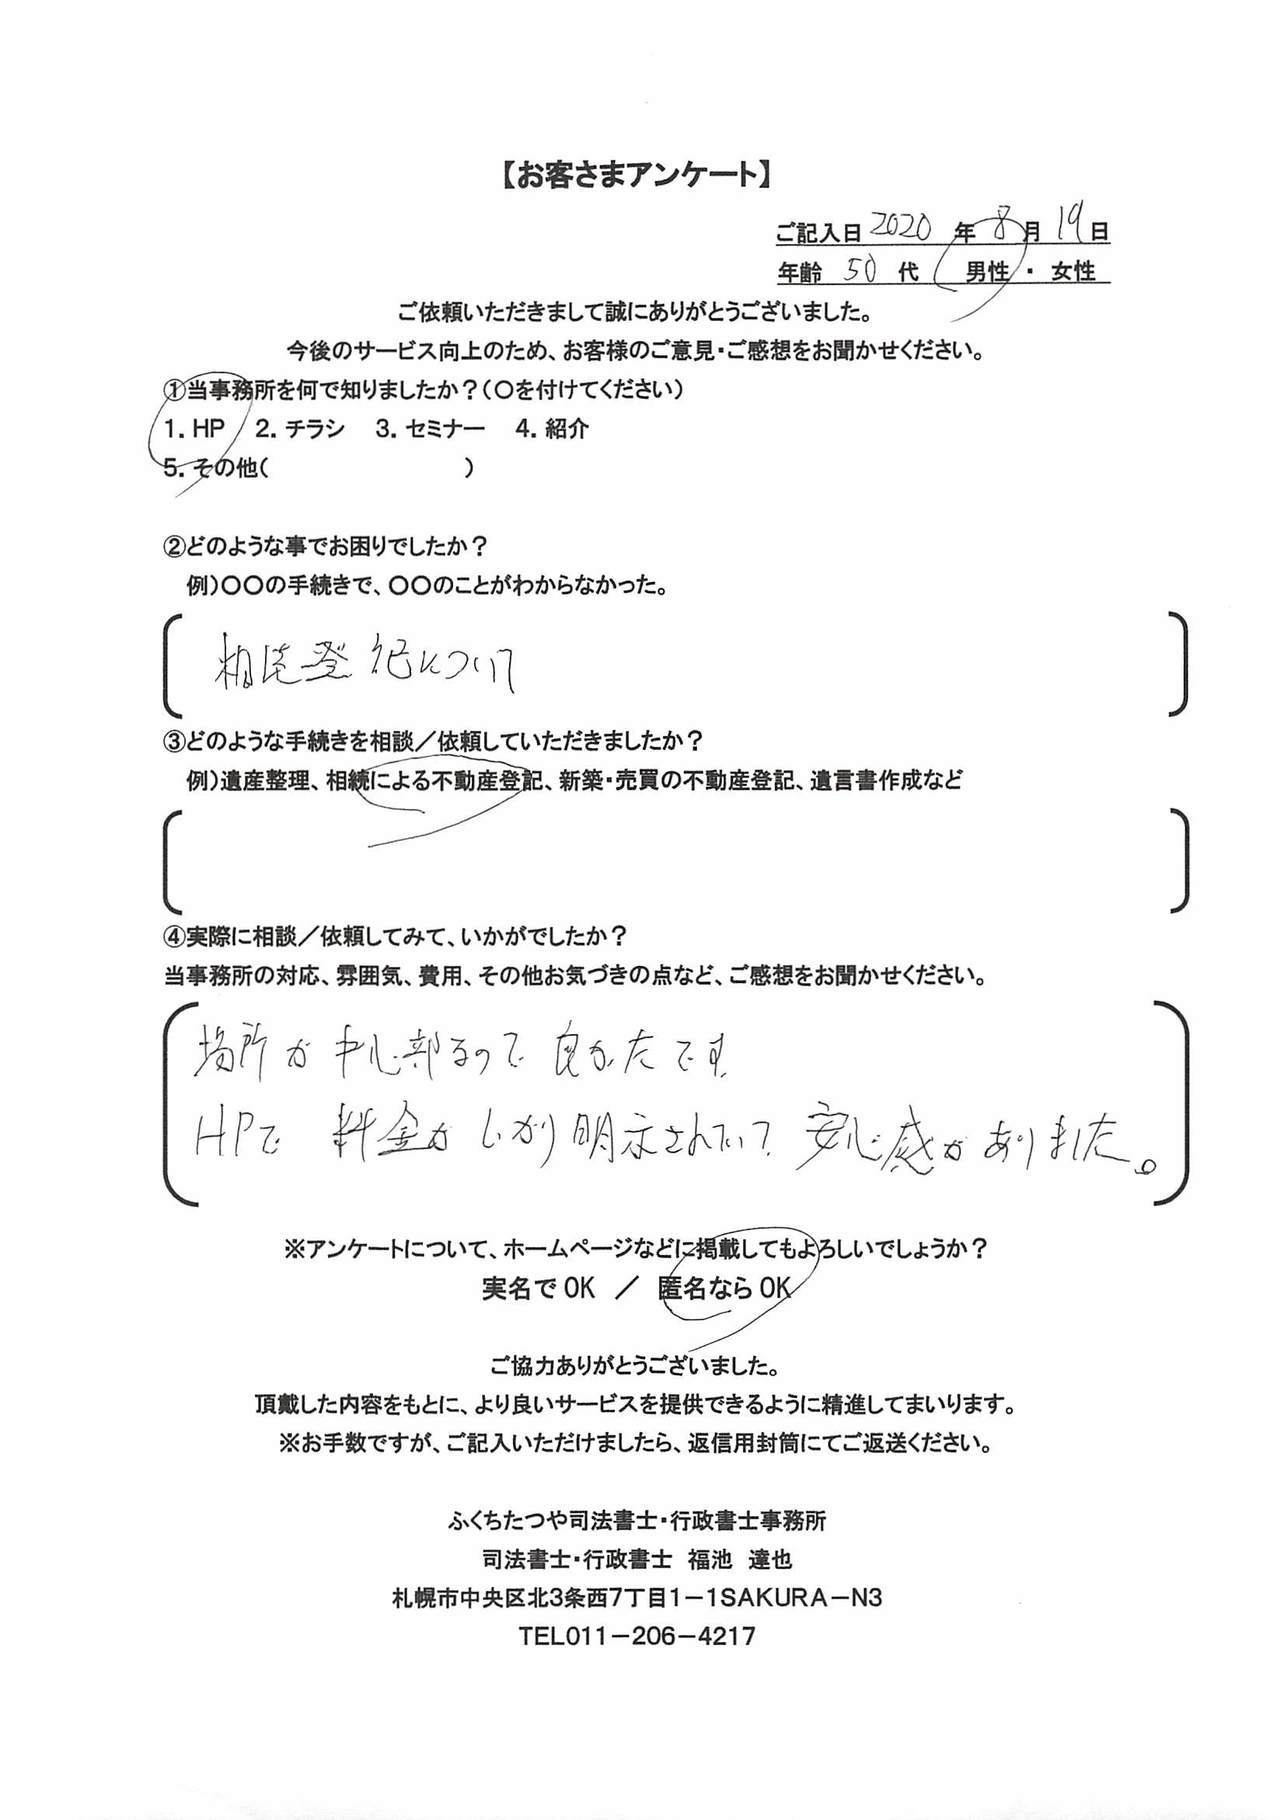 【お客さまアンケート】
ご記入日 2020 年 8 月 19 日
年齢 50 代 男性 ・ 女性
ご依頼いただきまして誠にありがとうございました。
今後のサービス向上のため、お客様のご意見・ご感想をお聞かせください。
①当事務所を何で知りましたか？(〇を付けてください)
1. HP 2. チラシ 3. セミナー 4. 紹介
5. その他( )
②どのような事でお困りでしたか？
例)〇〇の手続きで、〇〇のことがわからなかった。
登記について
③どのような手続きを相談／依頼していただきましたか？
例)遺産整理、相続による不動産登記、新築・売買の不動産登記、遺言書作成など
④実際に相談／依頼してみて、いかがでしたか？
当事務所の対応、雰囲気、費用、その他お気づきの点など、ご感想をお聞かせください。
場所が中心部 良かったです
HPで 料金がしっかり明示されていて 安心感がありました。
※アンケートについて、ホームページなどに掲載してもよろしいでしょうか？
実名でOK ／ 匿名ならOK
ご協力ありがとうございました。
頂戴した内容をもとに、より良いサービスを提供できるように精進してまいります。
※お手数ですが、ご記入いただけましたら、返信用封筒にてご返送ください。
ふくちたつや司法書士・行政書士事務所
司法書士・行政書士 福池 達也
札幌市中央区北3条西7丁目1－1SAKURA－N3
TEL011－206－4217